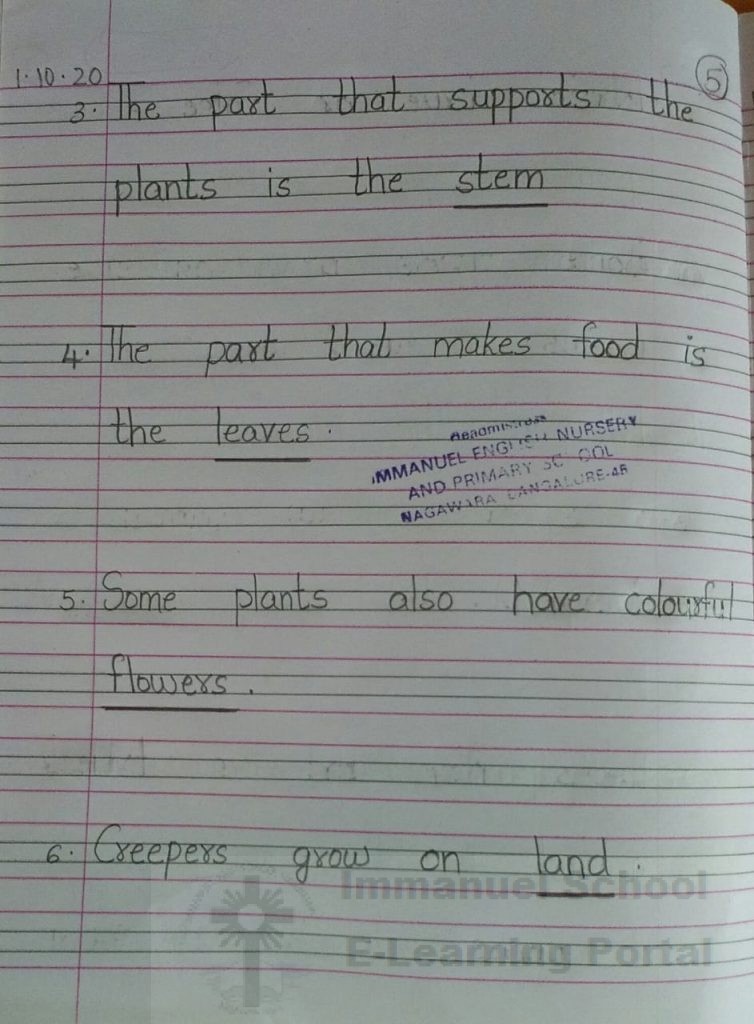 1.10.20
5
3. The part that supports the
plants is the stem
4. The part that makes food is
the leaves.
IMMANUEL ENGLISH NURSERY
AND PRIMARY SCHOOL
NAGAWARA BANGALORE-45
5. Some plants also have colourful
flowers.
6. Creepers grow on land.
Immanuel School
E-Learning Portal